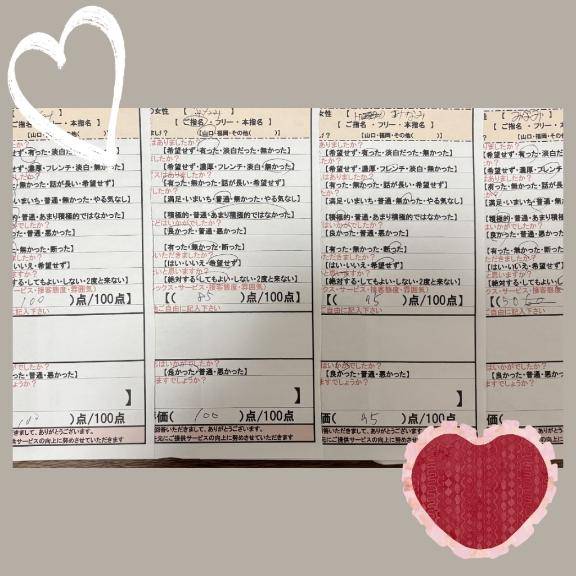 【ご指名・フリー・本指名】
[山口・福岡・その他( )]
ぜず・有った・淡白だった・無かった】
せず・濃厚・フレンチ・淡白・無かった】
た・無かった・話が長い・希望せず】
・いまいち・普通・無かった・やる気なし】
的・普通・あまり積極的ではなかった】
かった・普通・悪かった】
た・無かった・断った】
・いいえ・希望せず】
対する・してもよい・しない・2度と来ない】
100 )点/100点】
ご記入下さい
かった・普通・悪かった】
ますでしょうか?
】
)点/100点
の女性
【ご指名・フリー・本指名】
[山口・福岡・その他( )]
【希望せず・有った・淡白だった・無かった】
【希望せず・濃厚・フレンチ・淡白・無かった】
【有った・無かった・話が長い・希望せず】
【満足・いまいち・普通・無かった・やる気なし】
【積極的・普通・あまり積極的ではなかった】
【良かった・普通・悪かった】
【有った・無かった・断った】
【はい・いいえ・希望せず】
【絶対する・してもよい・しない・2度と来ない】
ックス・サービス・接客態度・雰囲気)
【( 85 )点/100点】
ご自由に記入下さい
はいかがでしたか?
【良かった・普通・悪かった】
ますでしょうか?
】
価( 100 )点/100点
回答いただきまして、ありがとうございます。
にご提供サービスの向上に努めさせていただきます
女性 みなみ
【ご指名・フリー・本指名】
[山口・福岡・その他( )]
ありましたか?
【希望せず・有った・淡白だった・無かった】
【希望せず・濃厚・フレンチ・淡白・無かった】
【有った・無かった・話が長い・希望せず】
【満足・いまいち・普通・無かった・やる気なし】
【積極的・普通・あまり積極的ではなかった】
【良かった・普通・悪かった】
【有った・無かった・断った】
【はい・いいえ・希望せず】
【絶対する・してもよい・しない・2度と来ない】
クス・サービス・接客態度・雰囲気)
【( 95 )点/100点】
ご自由に記入下さい
【良かった・普通・悪かった】
ますでしょうか?
】
価( 95 )点/100点
みなみ
【ご指名・フリー・本
[山口・福岡・その他
【希望せず・有った・淡
【希望せず・濃厚・フレン
【有った・無かった・話
【満足・いまいち・普通・無
【積極的・普通・あまり積
【良かった・普通・悪か
【有った・無かった・断
【はい・いいえ・希望せ
【絶対する・してもよい・し
【良かった・普通・悪か